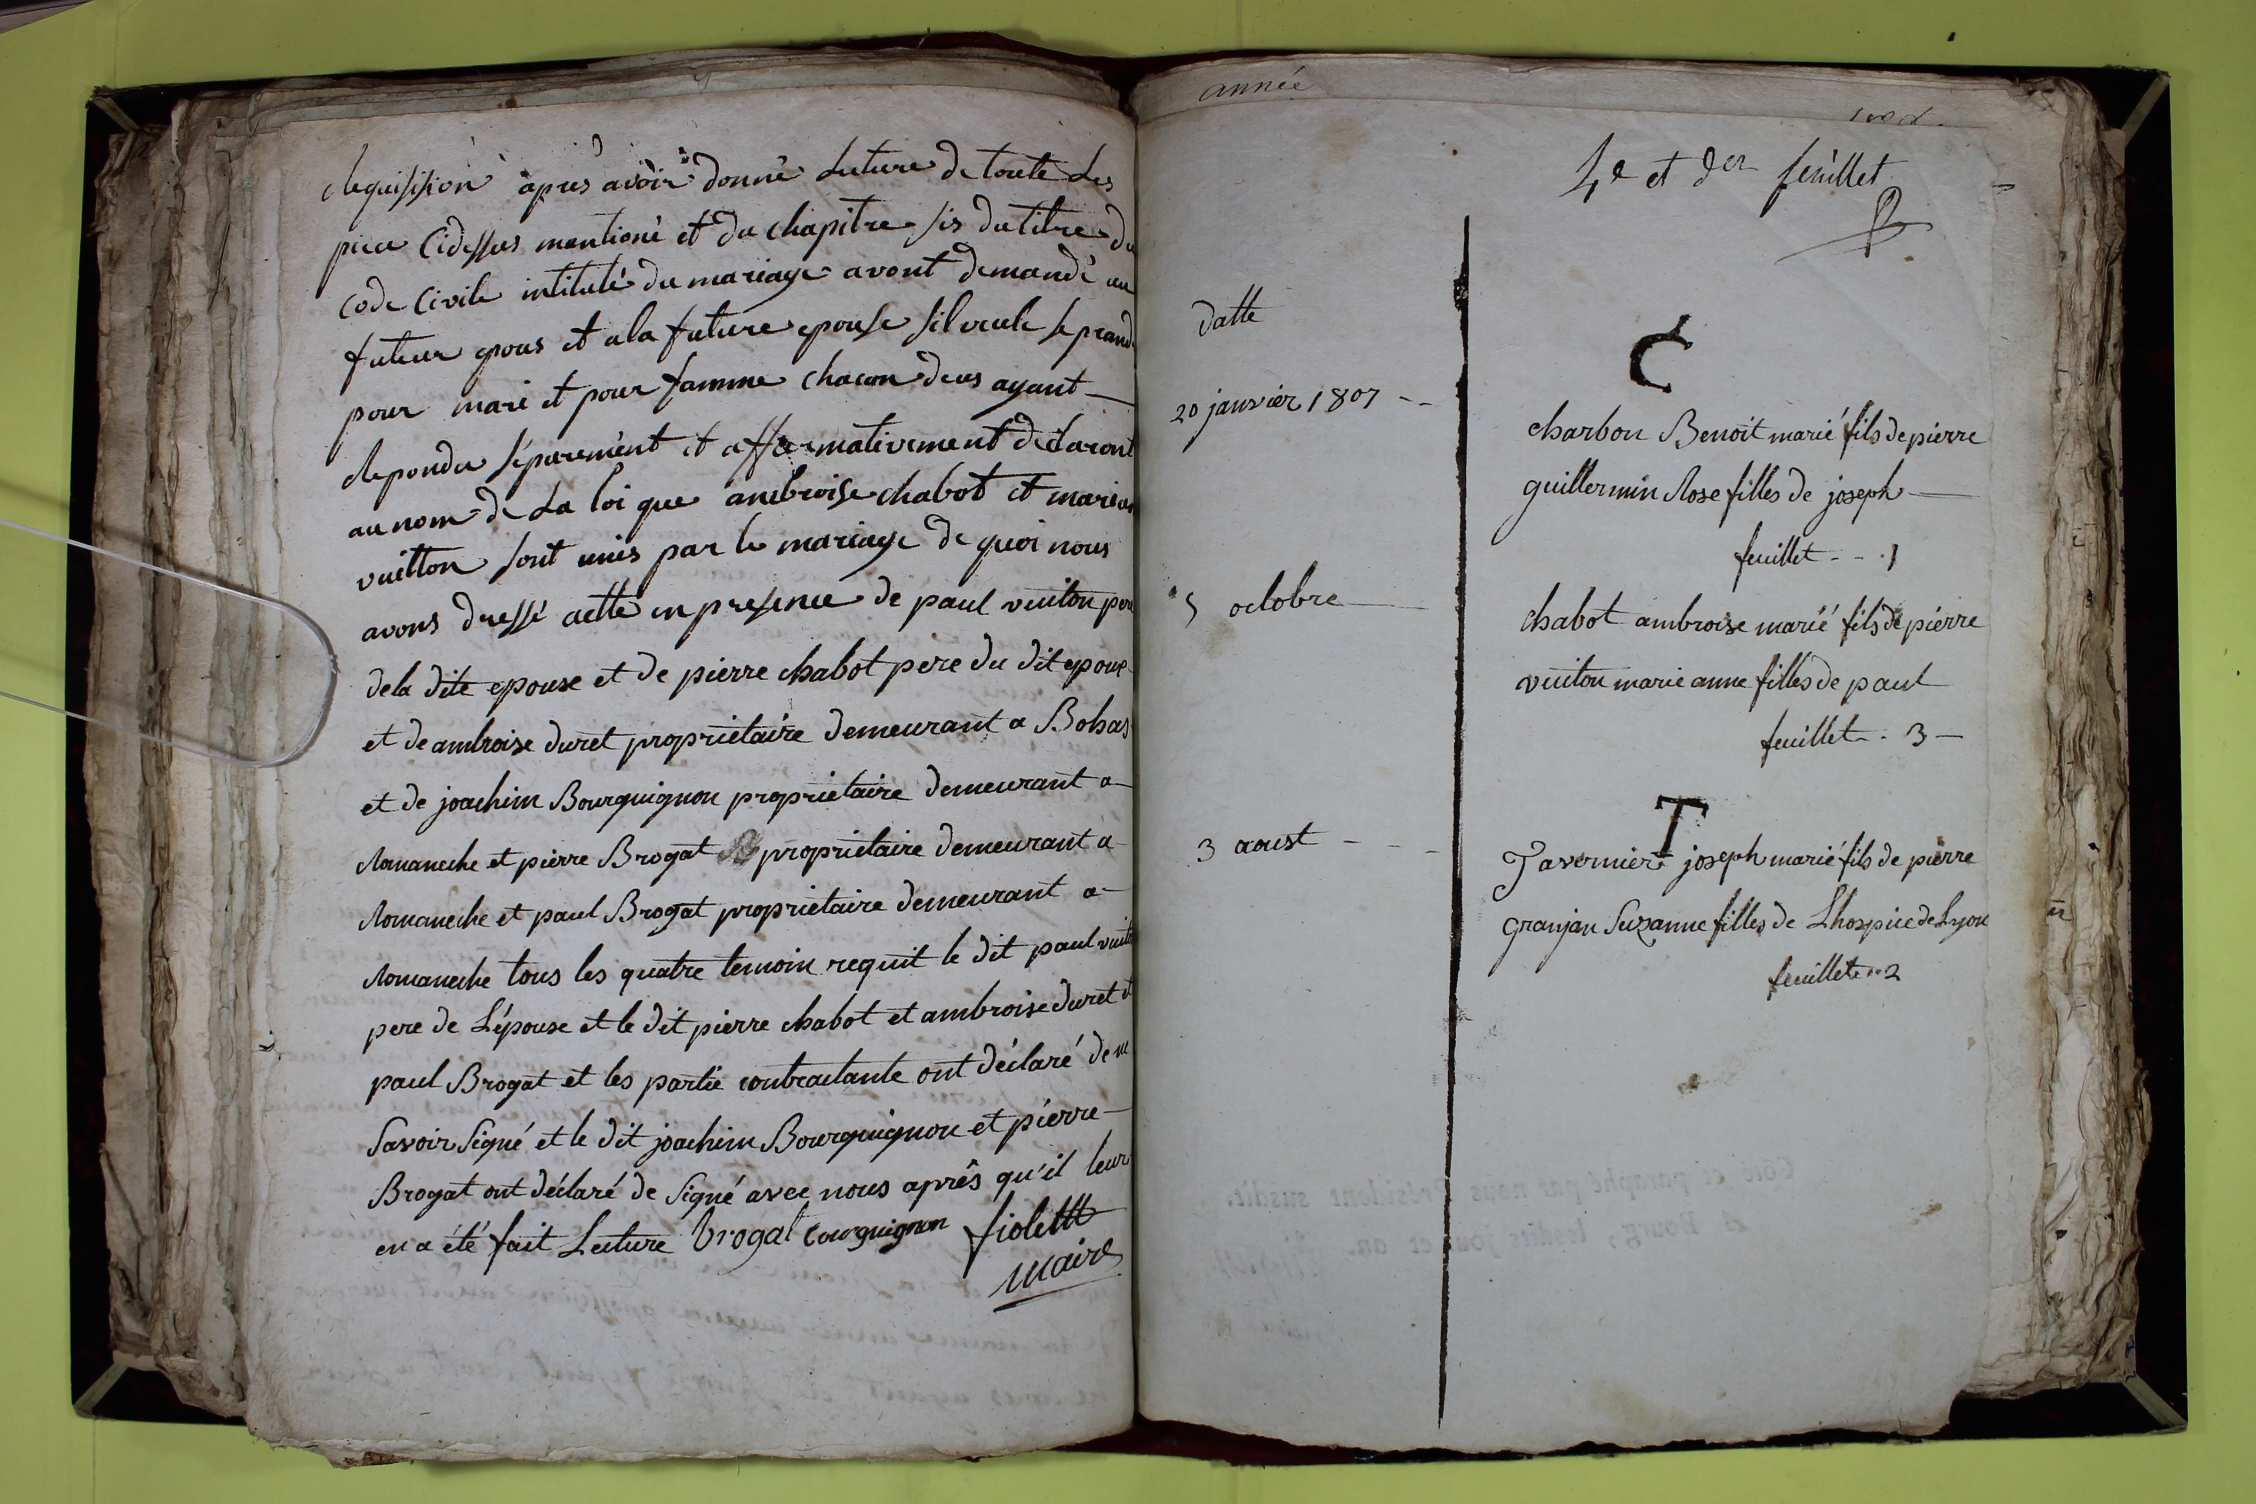 Requisision après avoir donné Lecture de toute Les
piece Cidessus mantioné et du chapitre sis du titre du
code Civile intitulé du mariage avont demandé au
futeur epous et a la future epouse sil veule se prand
pour mari et pour famme chacon deus ayant
Repondu séparement et affirmativement declaront
au nom de La loi que ambroise chabot et marian
vuitton sont unis par le mariage de quoi nous
avons dressé actte en presence de paul vuiton pere
de la dite epouse et de pierre chabot pere du dit epoux
et de ambroise duret propriétaire demeurant a Bohas
et de joachim Bourguignon proprietaire demeurant a
Romaneche et pierre Brogat propriétaire demeurant a
Romaneche et paul Brogat propriétaire demeurant a
Romaneche tous les quatre temoin requit le dit paul vuiton
pere de L'épouse et le dit pierre chabot et ambroise duret et
paul Brogat et les partie contractante ont déclaré de ne
Savoir Signé et le dit joachim Bourguignon et pierre
Brogat ont déclaré de Signé avec nous après qu'il leur
en a été fait Lecture brogat bourguignon fiolettt
maire
année
4e et der feuillet
datte
C
20 janvier 1807
charbon Benoit marié fils de pierre
guillermin Rose filles de joseph
feuillet 1
5 octobre
chabot ambroise marié fils de pierre
vuiton marie anne filles de paul
feuillet 3
T
3 aoust
Tavernier joseph marié fils de pierre
granjan Suzanne filles de Lhospice de Lyon
feuillet 2
Coté et paraphé par nous Président susdit.
A Bourg, lesdits jour et an.